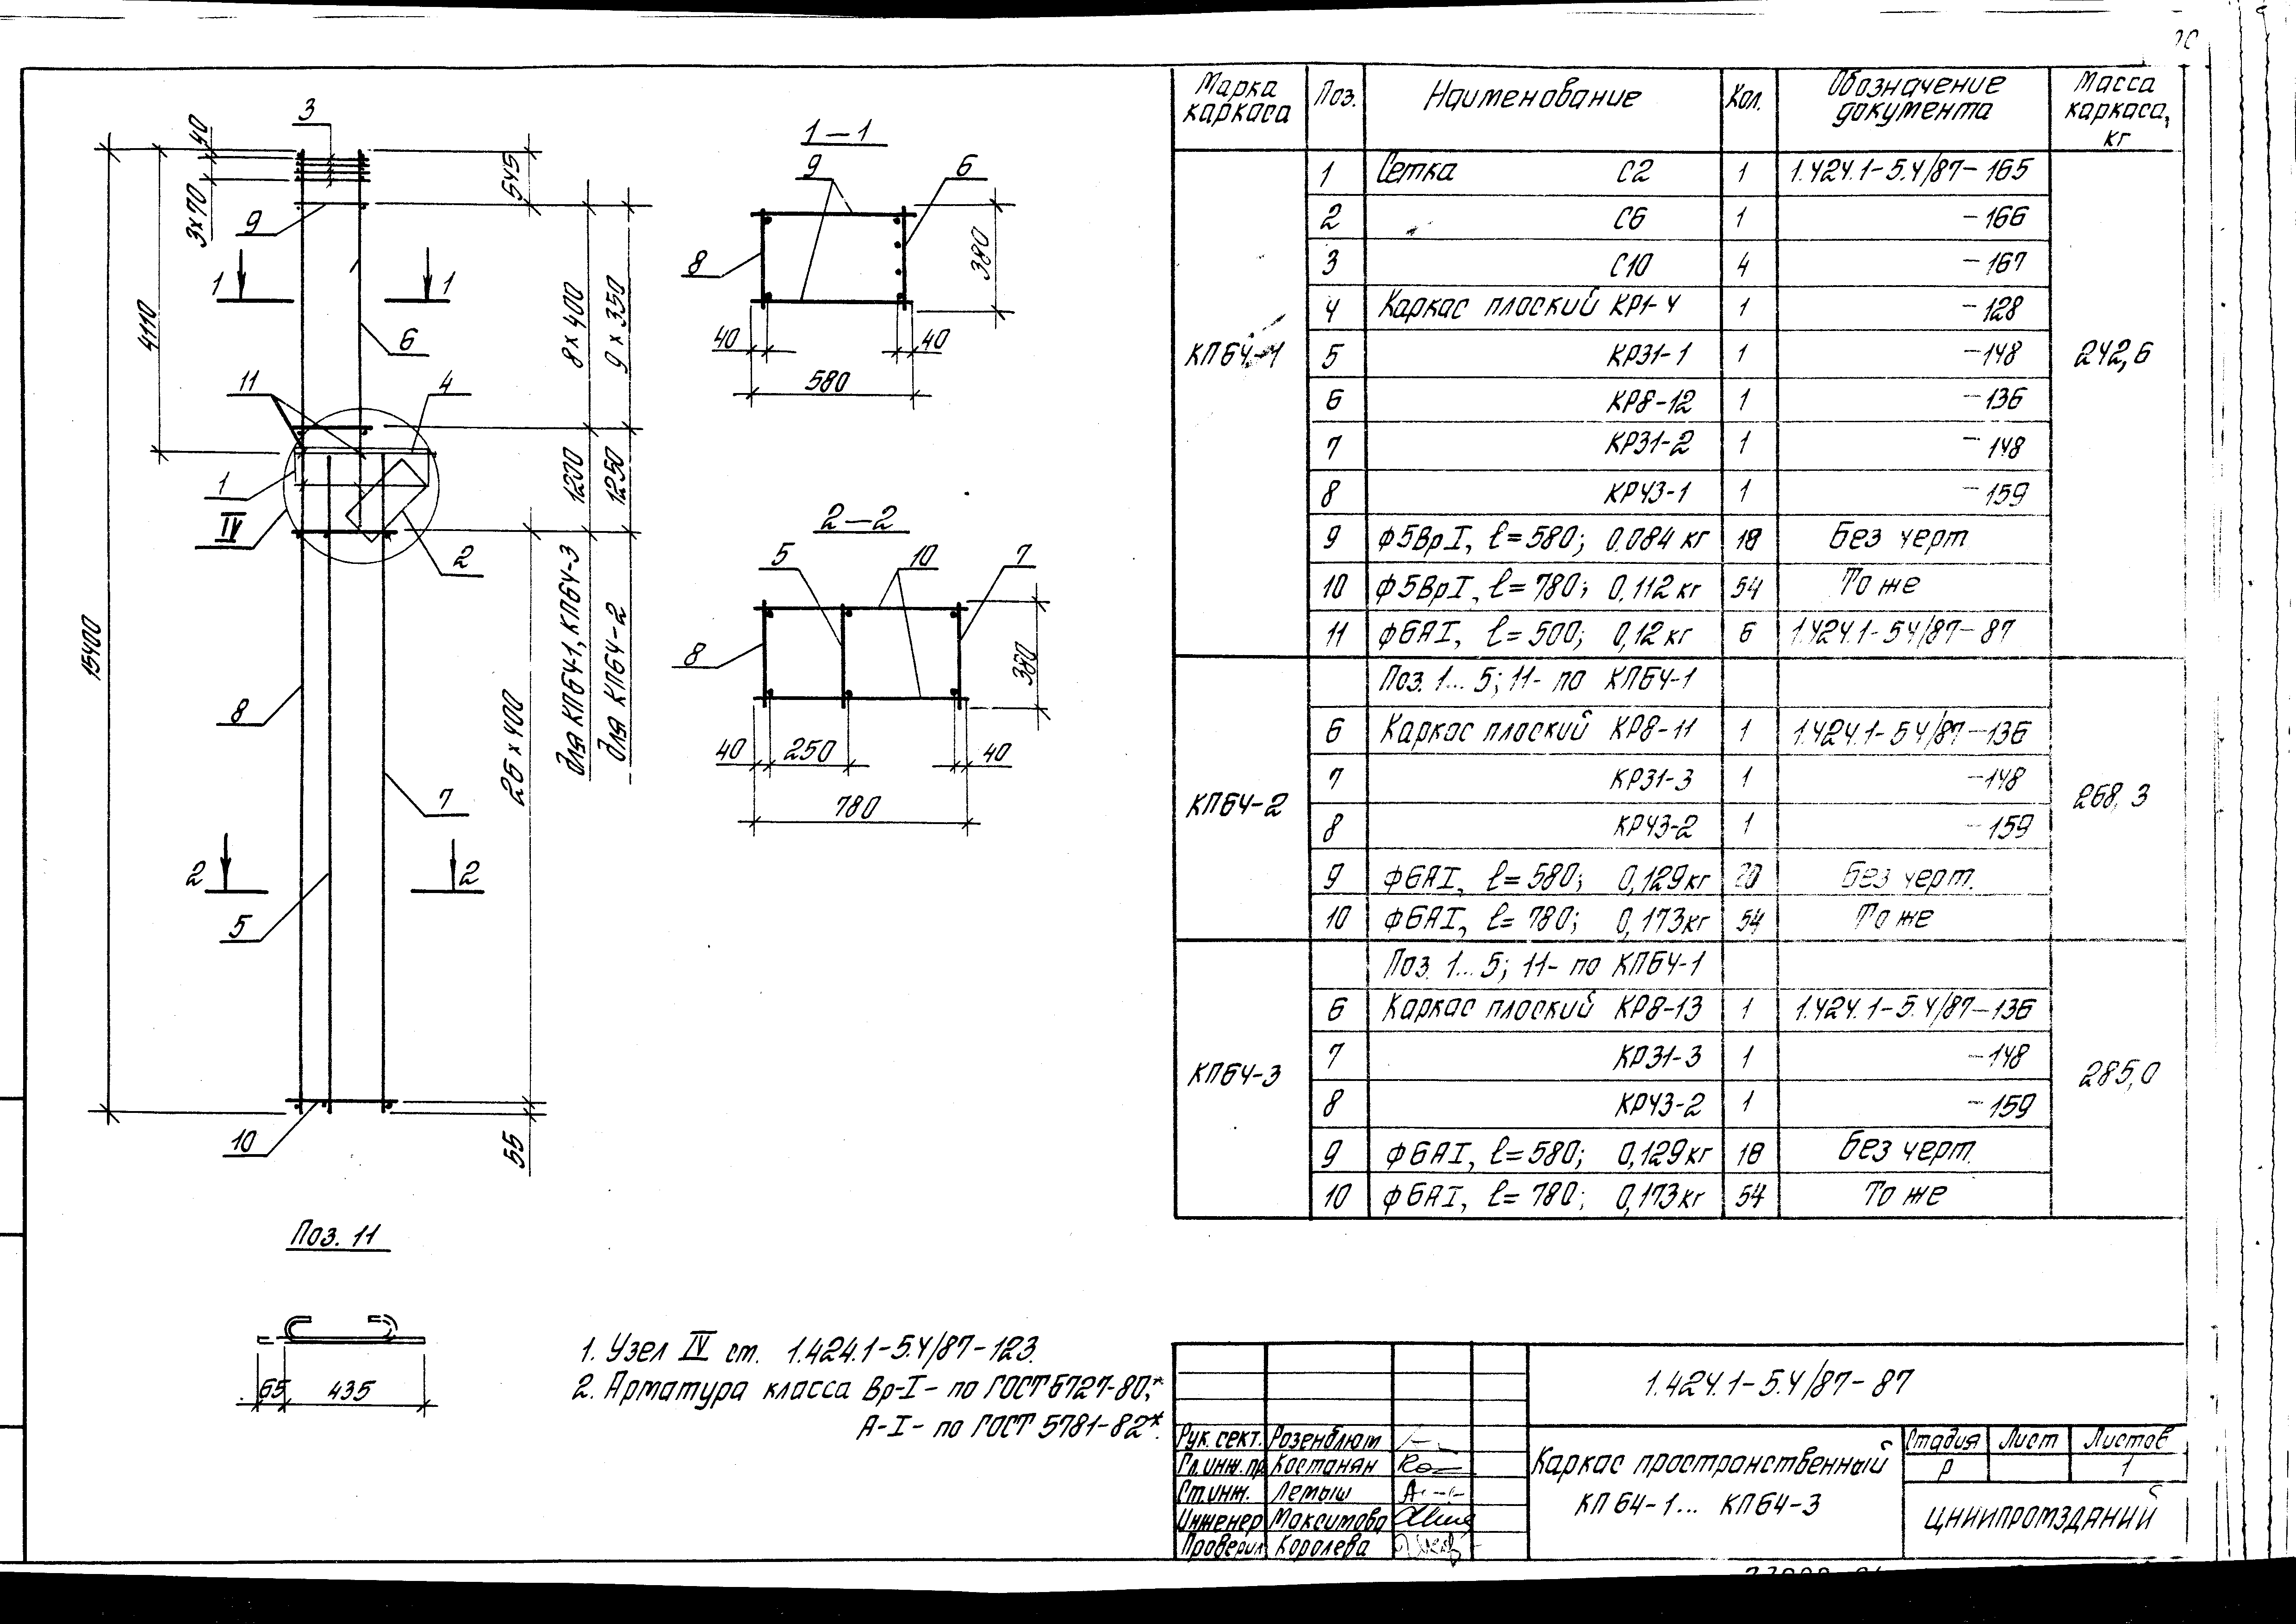 Марка каркаса | Поз. | Наименование | Кол. | Обозначение документа | Масса каркаса, кг
КП64-1 | 1 | Сетка С2 | 1 | 1.424.1-5.4/87-165 | 242,6
2 | С6 | 1 | -166
3 | С10 | 4 | -167
4 | Каркас плоский КР1-4 | 1 | -128
5 | КР31-1 | 1 | -148
6 | КР8-12 | 1 | -136
7 | КР31-2 | 1 | -148
8 | КР43-1 | 1 | -159
9 | ф5ВрI, ℓ=580; 0.084 кг | 18 | Без черт
10 | ф5ВрI, ℓ=780; 0,112 кг | 54 | То же
11 | ф6АI, ℓ=500; 0,12 кг | 6 | 1.424.1-54/87-87
КП64-2 | Поз. 1... 5; 11- по КП64-1 | 268,3
6 | Каркас плоский КР8-11 | 1 | 1.424.1-54/87-136
7 | КР31-3 | 1 | -148
8 | КР43-2 | 1 | -159
9 | ф6АI, ℓ=580; 0,129кг | 20 | Без черт.
10 | ф6АI, ℓ=780; 0,173кг | 54 | То же
КП64-3 | Поз. 1... 5; 11- по КП64-1 | 285,0
6 | Каркас плоский КР8-13 | 1 | 1.424.1-5.4/87-136
7 | КР31-3 | 1 | -148
8 | КР43-2 | 1 | -159
9 | ф6АI, ℓ=580; 0,129кг | 18 | Без черт.
10 | ф6АI, ℓ=780; 0,173кг | 54 | То же
3
40
3х70
545
9
1
1
4110
6
8 х 400
9 х 350
11
4
1
IV
2
1200
1250
для КП64-1, КП64-3
для КП64-2
15400
8
26 х 400
7
2
2
5
10
55
1-1
9
6
8
380
40
40
580
2-2
5
10
7
8
380
40
250
40
780
Поз. 11
65
435
1. Узел IV см. 1.424.1-5.4/87-123.
2. Арматура класса Вр-I- по ГОСТ 6727-80,*
А-I- по ГОСТ 5781-82*.
1.424.1-5.4/87-87
Рук. сект. Розенблюм
Гл.инж.пр Костанян
Ст.инж. Лемыш
Инженер Максимова
Проверил Королева
Каркас пространственный
КП 64-1... КП64-3
Стадия | Лист | Листов
Р | 1
ЦНИИПРОМЗДАНИЙ